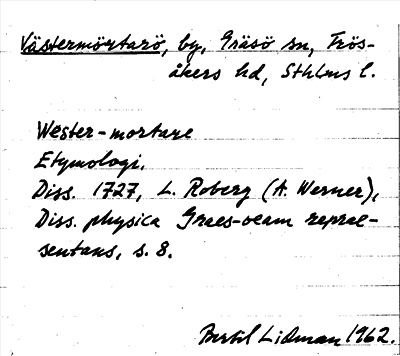 Västermörtarö, by, Gräsö sn, Frös-
åkers hd, Sthlms l.
Wester-mortare
Etymologi.
Diss. 1727, L. Roberg (A. Werner),
Diss. physica Graes-oeam reprae-
sentans, s. 8.
Bertil Lidman 1962.